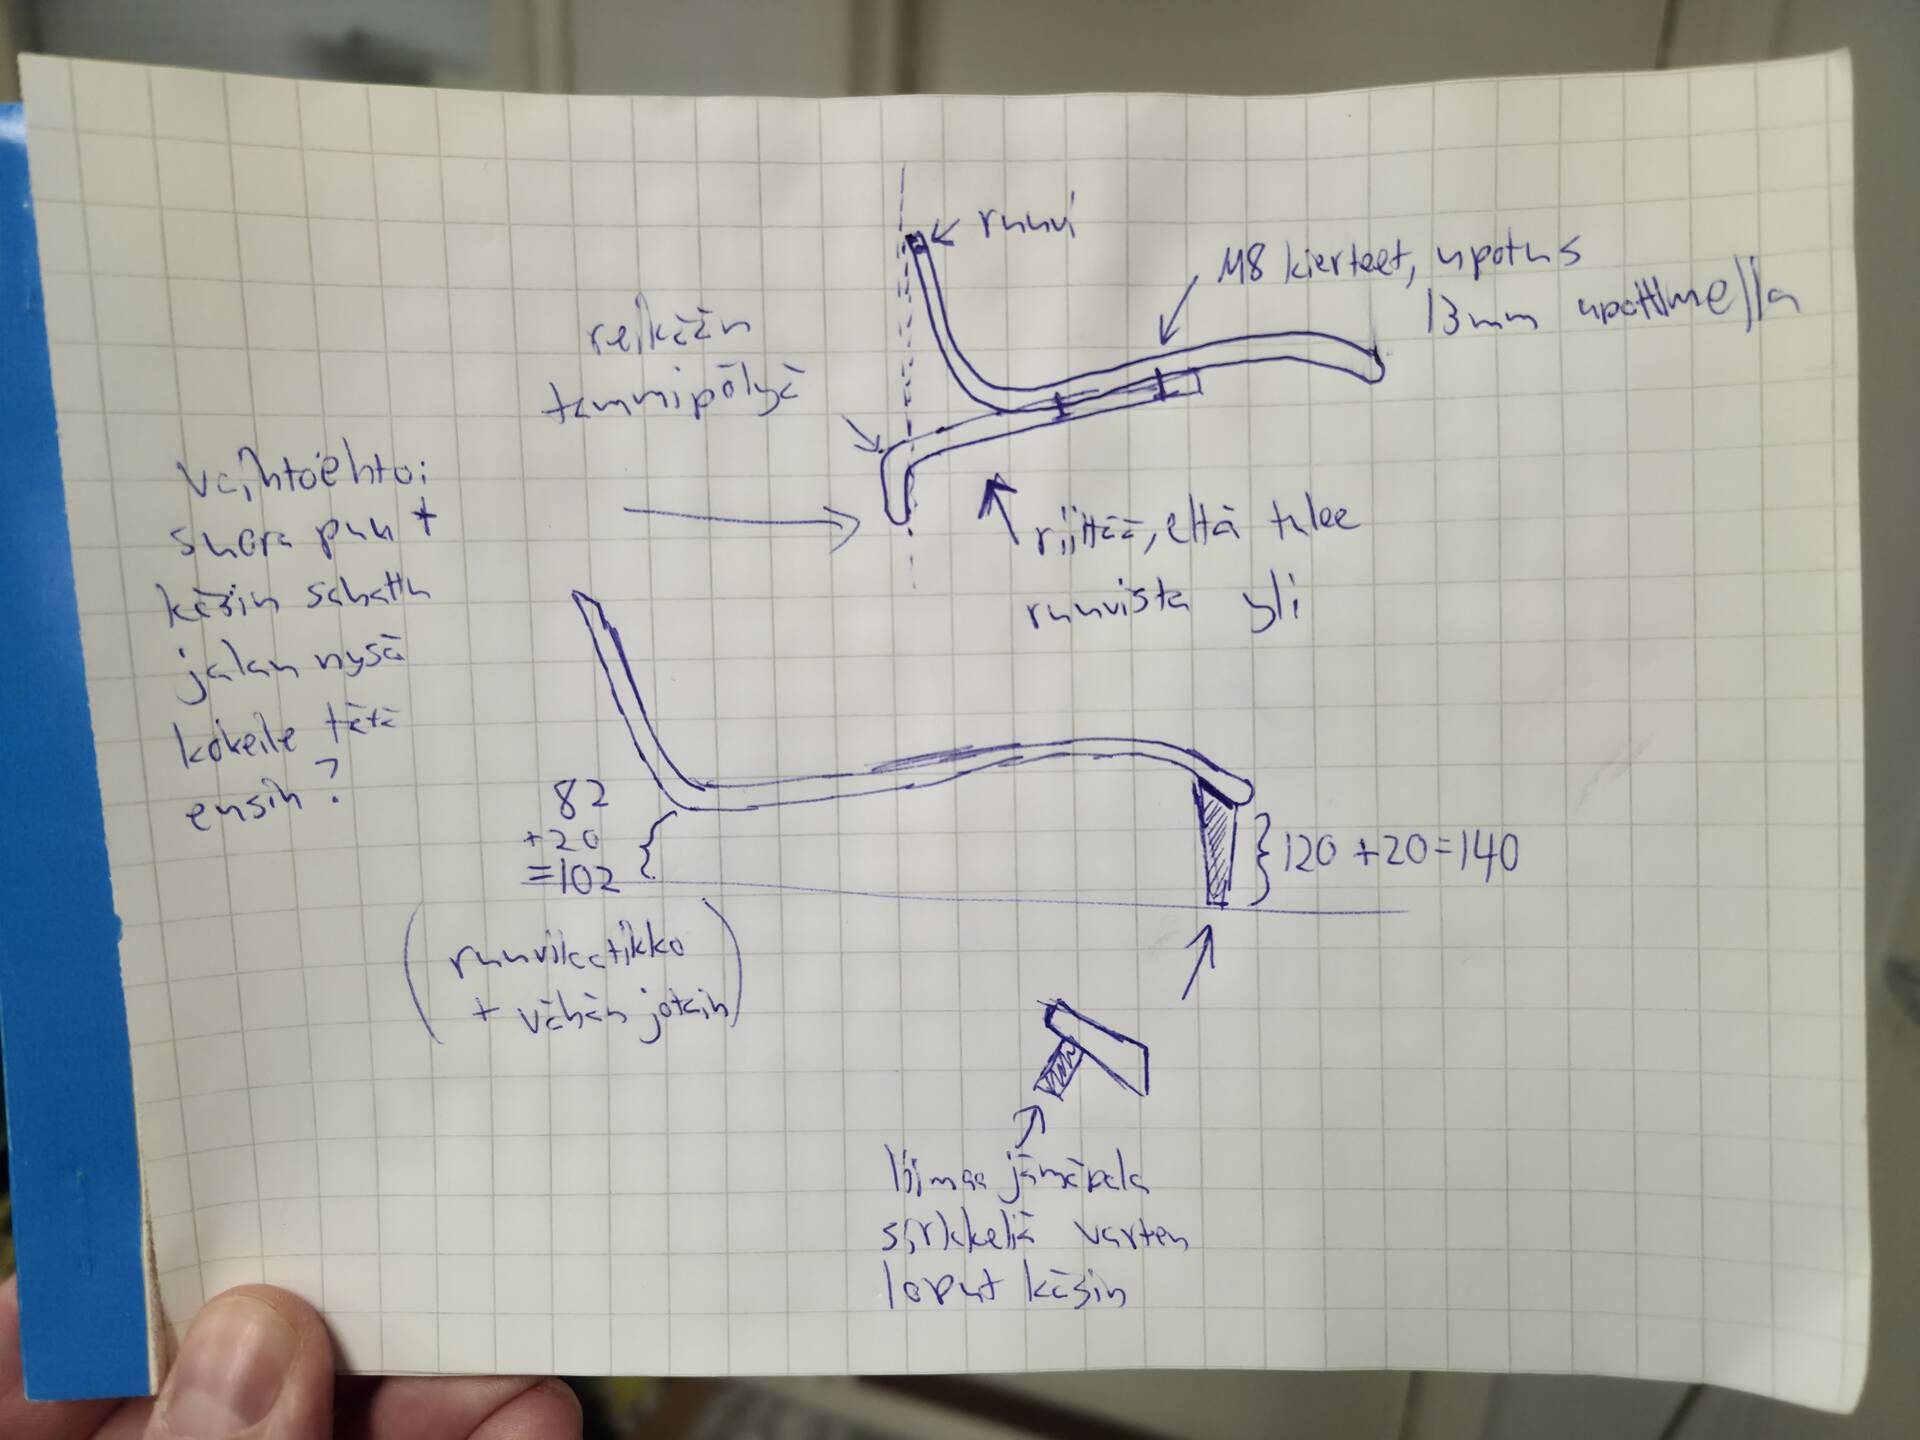 ruuvi
M8 kierteet, upotus
13mm upottimella
reikään
tammipölyä
vaihtoehto:
suora puu +
käsin sahattu
jalan nysä
kokeile tätä
ensin?
riittää, että tulee
ruuvista yli
82
+20
=102
(ruuvikatikko
+ vähän jotain)
120+20=140
liimaa jämäpala
sirkkeliä varten
loput käsin